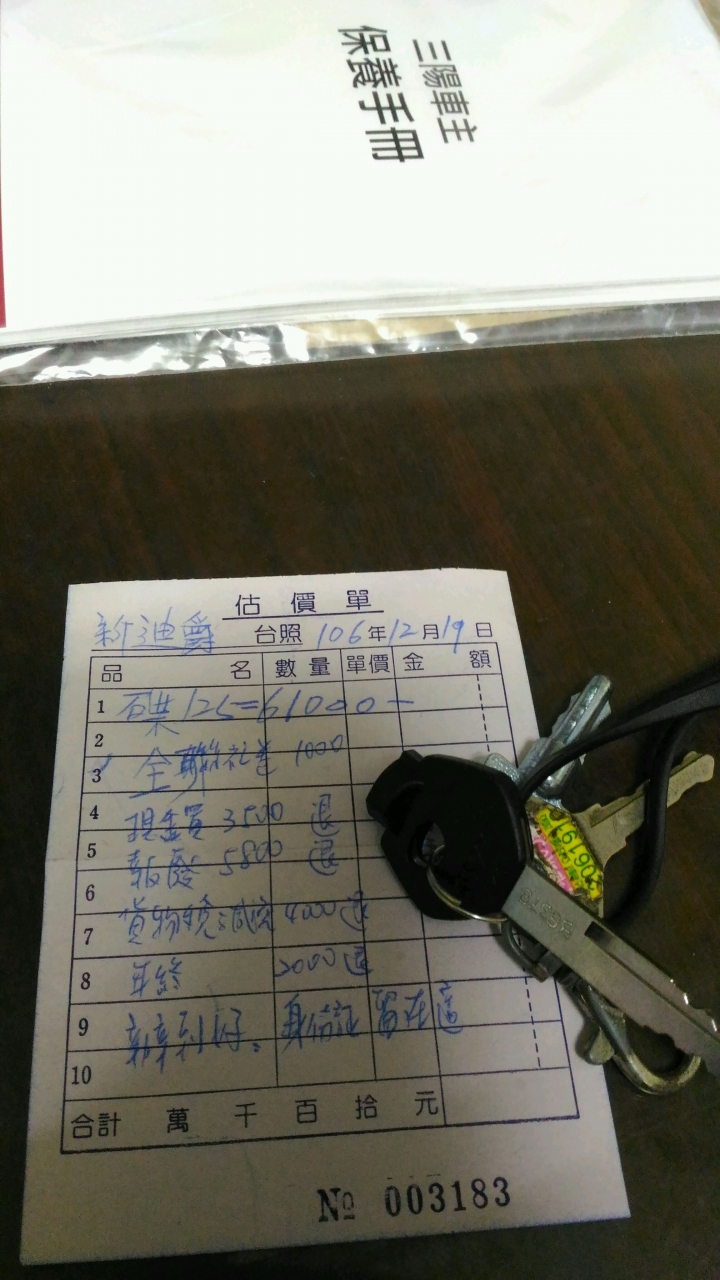 三陽車主
保養手冊
估價單
新迪爵 台照 106年12月19日
品名 數量 單價 金額
1 碟125=61000-
2
3 全聯礼卷 1000
4 現金買 3500 退
5 報廢 5800 退
6
7 貨物稅減 4000 退
8 年終 2000 退
9 身份証 留在這
10
合計 萬 千 百 拾 元
№ 003183